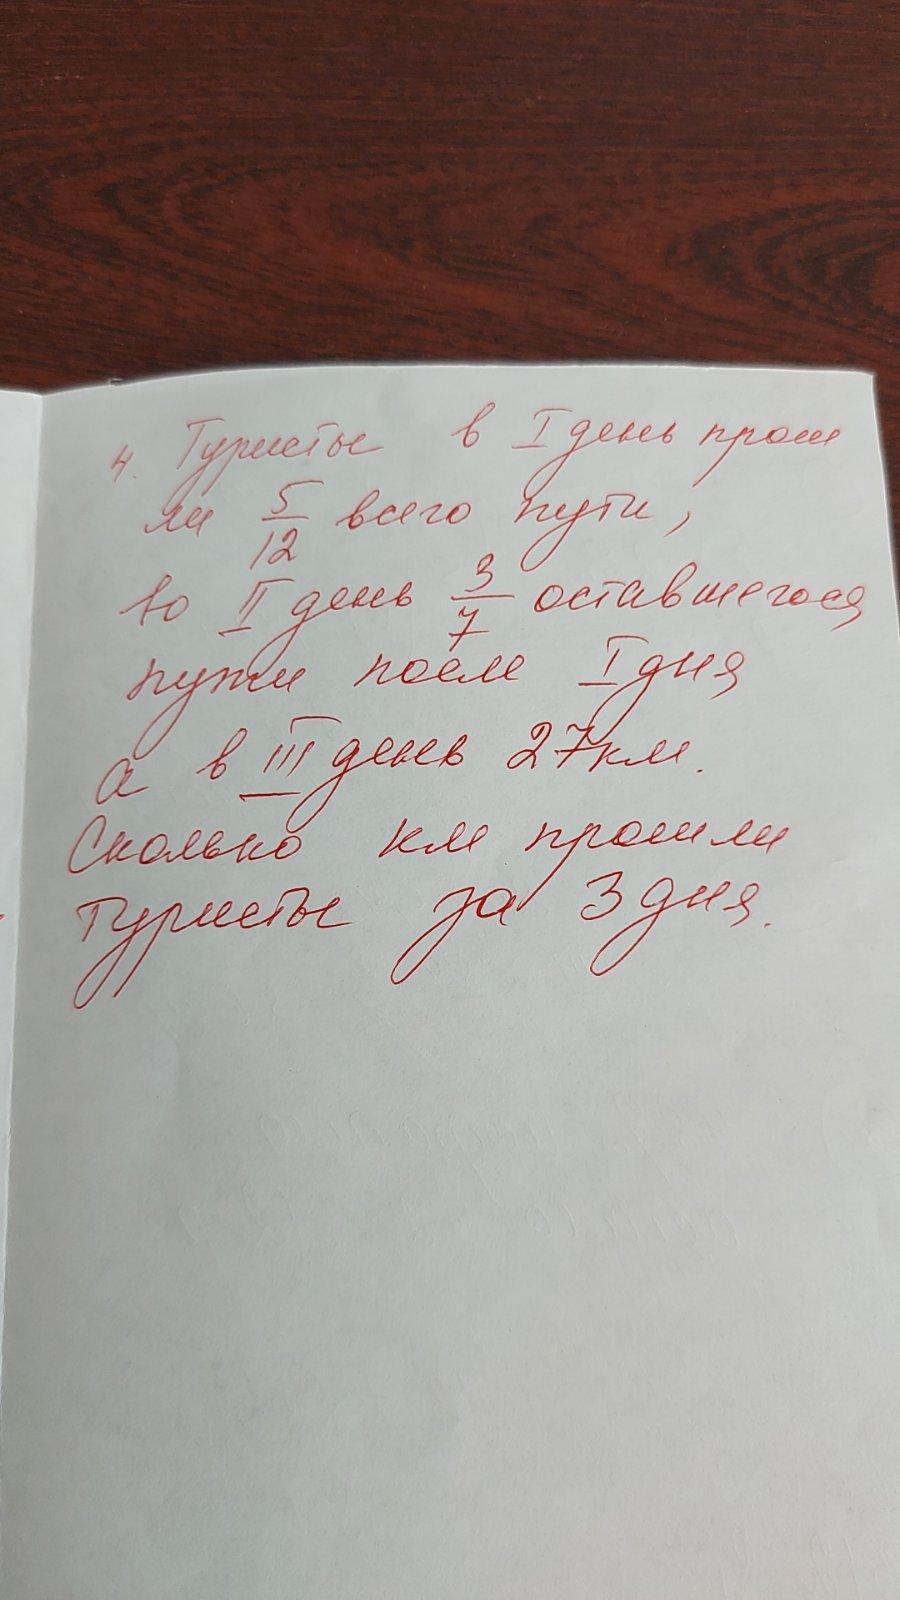 4. Туристы в I день прош
ли 5/12 всего пути,
во II день 3/7 оставшегося
пути после I дня
а в III день 27км.
Сколько км прошли
туристы за 3 дня.